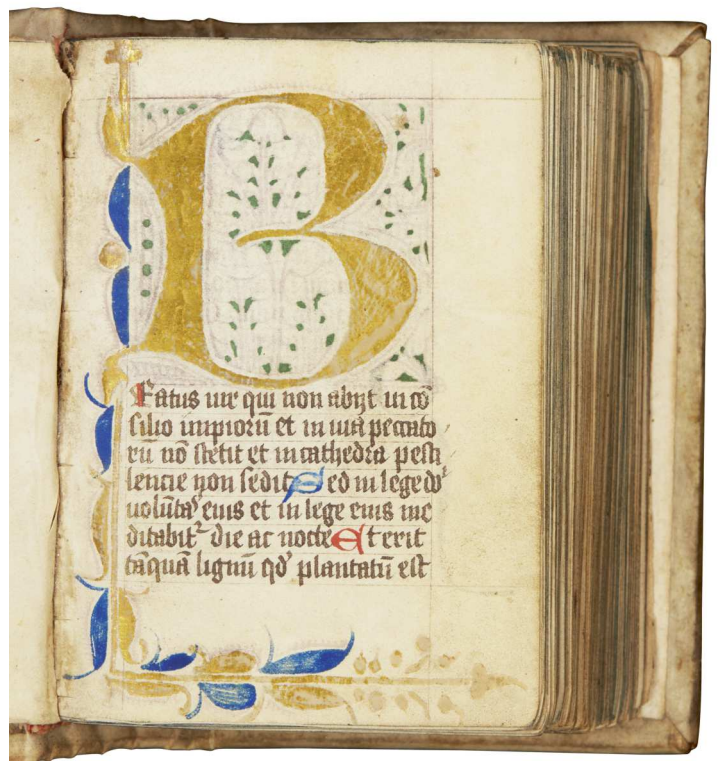 B
Eatus uir qui non abijt in cō
silio impiorū et in uia peccato
rū nō stetit et in cathedra pesti
lencie non sedit Sed in lege dn̄i
uolūtas eius et in lege eius me
ditabit᷑ die ac nocte Et erit
tāquā lignū qd̓ plantatū est